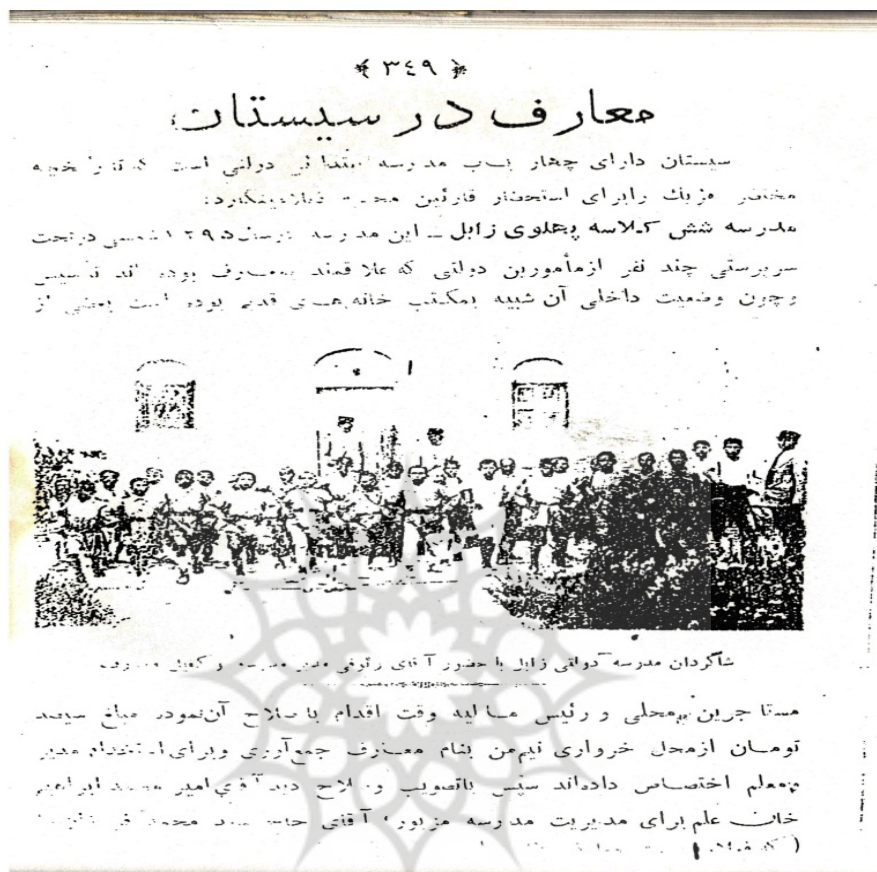 ﴿ ۳٤۹ ﴾
معارف در سیستان
سیستان دارای چهار باب مدرسه ابتدائی دولتی است که تاریخچه
مختصر هریك را برای استحضار قارئین محترم ذیلا مینگارد:
مدرسه شش کلاسه پهلوی زابل ــ این مدرسه درسال ۱۲۹۵ شمسی در تحت
سرپرستی چند نفر ازمأمورین دولتی که علاقمند بمعارف بوده اند تأسیس
وچون وضعیت داخلی آن شبیه بمکتب خانه های قدیم بوده است بعضی از
شاگردان مدرسه دولتی زابل با حضور آقای رئوفی مدیر مدرسه و کفیل معارف
مستاجرین محلی و رئیس مالیه وقت اقدام باصلاح آن نموده مبلغ سیصد
تومان ازمحل خرواری نیم من بنام معارف جمع آوری وبرای استخدام مدیر
معلم اختصاص داده اند سپس باتصویب وصلاح دید آقای امیر محمد ابراهیم
خان علم برای مدیریت مدرسه مزبور آقای حاج سید محمد